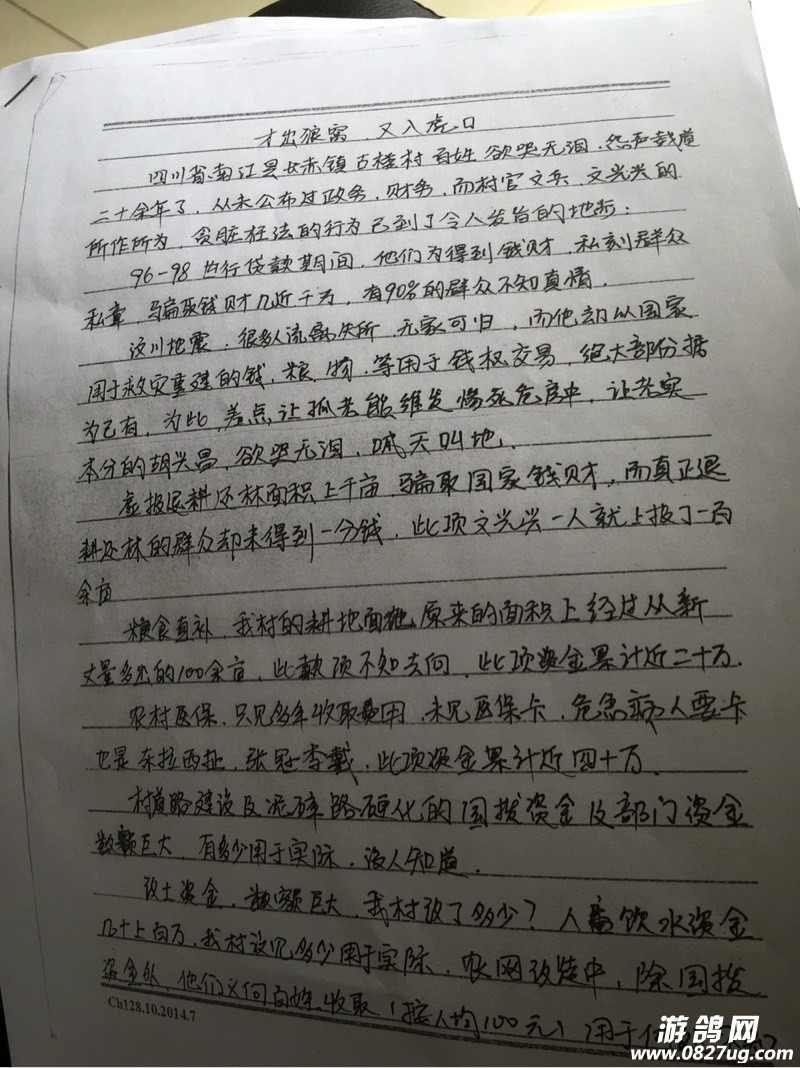 才出狼窝 又入虎口
四川省南江县女赤镇古楼村百姓欲哭无泪.怨声载道
二十余年了,从未公布过政务,财务,而村官文兵、文光兴的
所作所为,贪脏枉法的行为已到了令人发指的地步:
96-98 央行贷款期间,他们为得到钱财,私刻群众
私章,骗取钱财几近千万,有90%的群众不知真情.
汶川地震,很多人流离失所,无家可归,而他却以国家
用于救灾重建的钱、粮、物、等用于钱权交易,绝大部份据
为己有,为此,差点让孤老熊维发惨死危房中,让老实
本分的胡兴昌,欲哭无泪,喊天叫地.
虚报退耕还林面积上千亩,骗取国家钱财,而真正退
耕还林的群众却未得到一分钱,此项文光兴一人就上报了一百
余亩
粮食直补,我村的耕地面积原来的面积上经过从新
丈量多出的100余亩,此款项不知去向,此项资金累计近二十万.
农村医保,只见多年收取费用,未见医保卡,危急病人要卡
也是东拉西扯,张冠李戴,此项资金累计近四十万.
村道路建设及泥碎路硬化的国拨资金及部门资金
数额巨大,有多少用于实际,没人知道.
改土资金,数额巨大,我村改了多少?人畜饮水资金
几十上百万,我村设见多少用于实际,农网改造中,除国拨
资金外,他们又向百姓收取(按人均100元)用于
Ch128.10.2014.7
游鸽网
www.0827ug.com